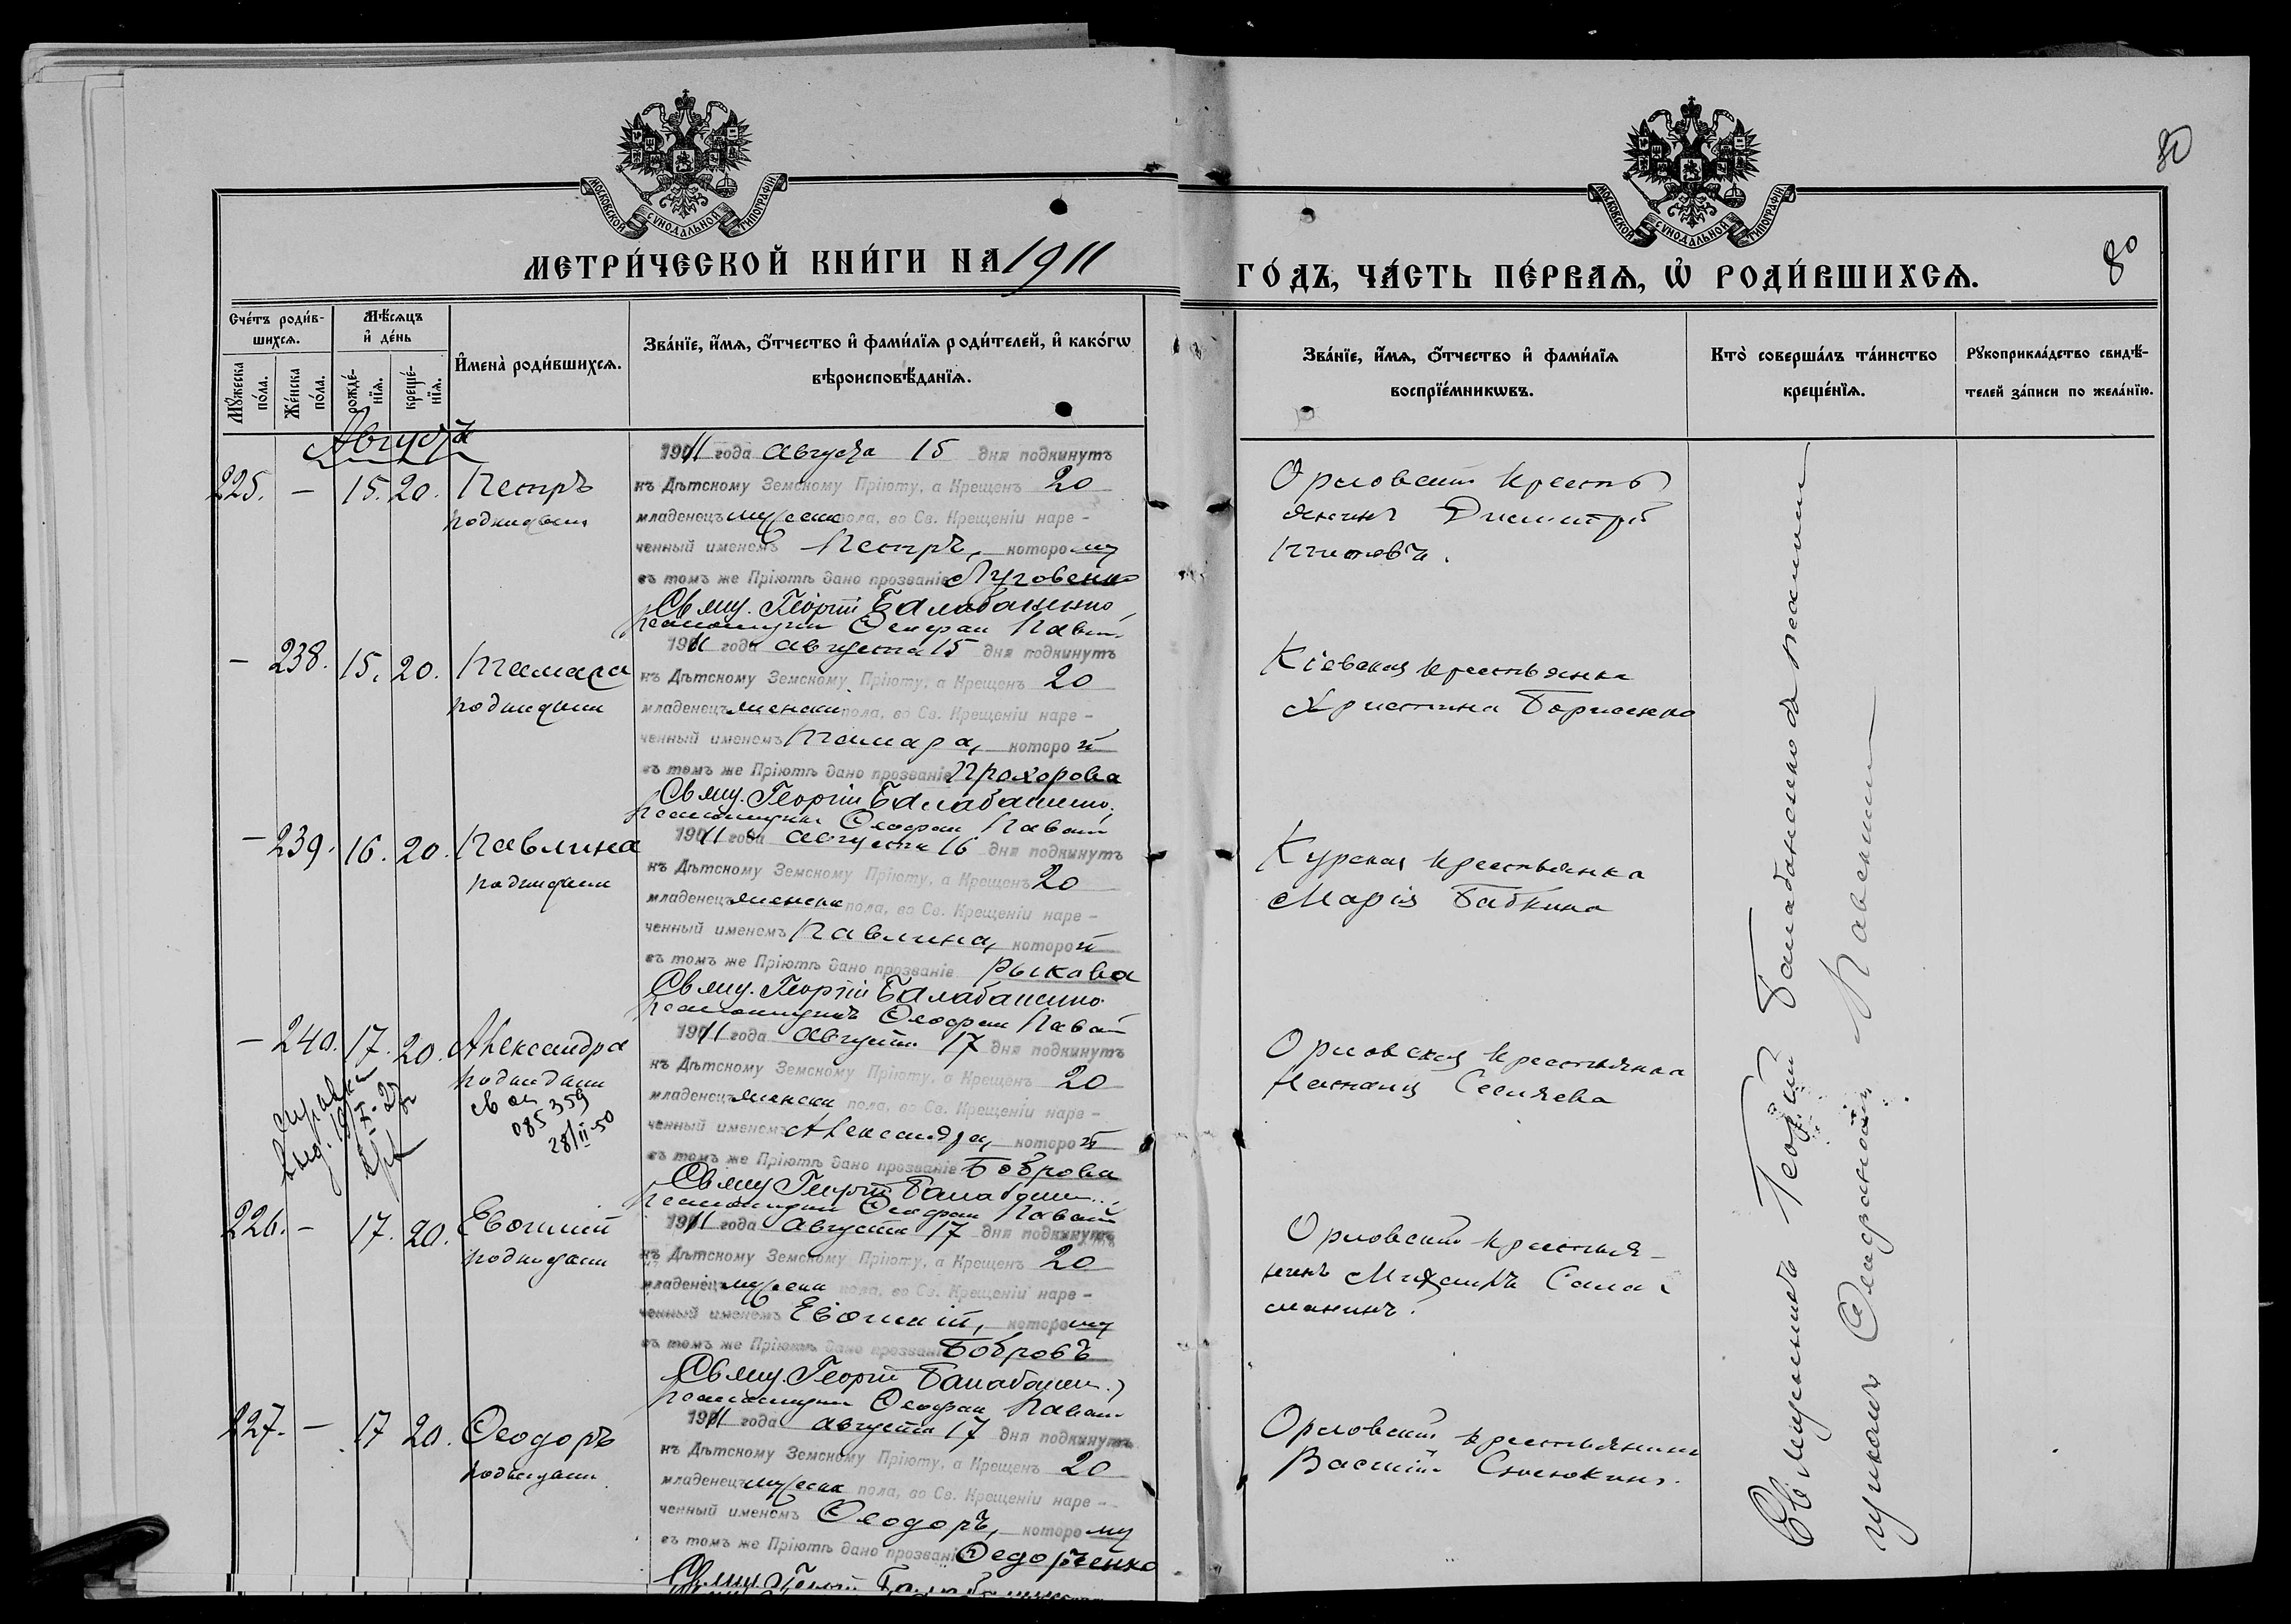 80
МОСКОВСКОЙ СѴНОДАЛЬНОЙ ТИПОГРАФІИ
МОСКОВСКОЙ СѴНОДАЛЬНОЙ ТИПОГРАФІИ
МЕТРИ́ЧЕСКОЙ КНИ́ГИ НА 1911
ГО́ДЪ, ЧА́СТЬ ПЕ́РВАѦ, Ѡ҆ РОДИ́ВШИХСѦ.
80
Сче́тъ роди́в-
шихсѧ.
Мꙋ́жеска по́ла.
Же́нска по́ла.
Мѣ́сѧцъ
и҆ де́нь
рожде́-
нїѧ.
креще́-
нїѧ.
И҆мена̀ роди́вшихсѧ.
Зва́нїе, и҆́мѧ, ѻ҆́тчество и҆ фами́лїѧ роди́телей, и҆ како́гѡ
вѣроисповѣ́данїѧ.
Зва́нїе, и҆́мѧ, ѻ҆́тчество и҆ фами́лїѧ
воспрїе́мникѡвъ.
Кто̀ соверша́лъ та́инство
креще́нїѧ.
Рꙋкоприкла́дство свидѣ́-
телей за́писи по жела́нїю.
Августъ
225. — 15. 20. Петръ
подкидыш
1911 года Августа 15 дня подкинутъ
къ Дѣтскому Земскому Пріюту, а Крещенъ 20
младенецъ мужеска пола, во Св. Крещеніи наре-
ченный именемъ Петръ, которому
въ томъ же Пріютѣ дано прозваніе Луговенко
Свящ. Георгій Балабаненко
Псаломщик Олефран Павлт
Орловскій Кресть
янинъ Димитрій
Титовъ.
— 238. 15. 20. Тамара
подкидыш
1911 года августа 15 дня подкинутъ
къ Дѣтскому Земскому Пріюту, а Крещенъ 20
младенецъ женска пола, во Св. Крещеніи наре-
ченный именемъ Тамара, которой
въ томъ же Пріютѣ дано прозваніе Прохорова
Свящ. Георгій Балабаненко
Псаломщик
Кіевская крестьянка
Христина Борисенко
— 239. 16. 20. Павлина
подкидыш
1911 года августа 16 дня подкинутъ
къ Дѣтскому Земскому Пріюту, а Крещенъ 20
младенецъ женска пола, во Св. Крещеніи наре-
ченный именемъ Павлина, которой
въ томъ же Пріютѣ дано прозваніе Рыкова
Свящ. Георгій Балабаненко
Псаломщикъ
Курская крестьянка
Марія Бабкина
— 240. 17. 20. Александра
подкидыш
085359
28/II 50
справка
выд. 19/X-27
1911 года августа 17 дня подкинутъ
къ Дѣтскому Земскому Пріюту, а Крещенъ 20
младенецъ женска пола, во Св. Крещеніи наре-
ченный именемъ Александра, которой
въ томъ же Пріютѣ дано прозваніе Боброва
Свящ Георгій Балабанен
Псаломщик
Орловская крестьянка
226. — 17. 20. Евѳимій
подкидыш
1911 года Августа 17 дня подкинутъ
къ Дѣтскому Земскому Пріюту, а Крещенъ 20
младенецъ мужеска пола, во Св. Крещеніи наре-
ченный именемъ Евѳимій, которому
въ томъ же Пріютѣ дано прозваніе Бобровъ
Свящ. Георгій Балабанен
Псаломщик
Орловскій крестья-
нинъ Михаилъ
227. — 17 20. Ѳеодоръ
подкидыш
1911 года августа 17 дня подкинутъ
къ Дѣтскому Земскому Пріюту, а Крещенъ 20
младенецъ мужеска пола, во Св. Крещеніи наре-
ченный именемъ Ѳеодоръ, которому
въ томъ же Пріютѣ дано прозваніе Ѳедорченко
Свящ Георгій Балабаненко
Орловскій крестьянинъ
Василій
Священникъ Георгій Балабаненко съ псаломщи